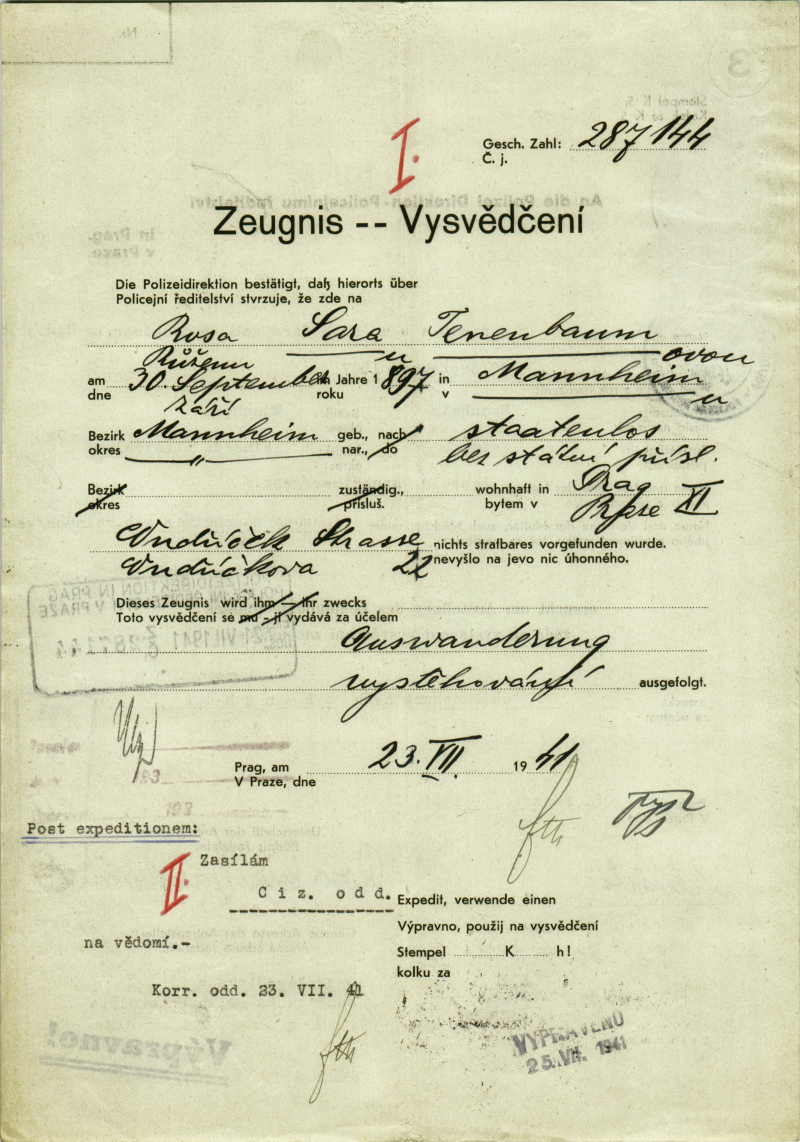 I.
Gesch. Zahl: 287144
Č. j.
Zeugnis -- Vysvědčení
Die Polizeidirektion bestätigt, daß hierorts über
Policejní ředitelství stvrzuje, že zde na
Rosa Sara Tenenbaum
Růženu " ovou
am 30. September im Jahre 1897 in Mannheim
dne září roku v u
Bezirk Mannheim geb., nach staatenlos
okres " nar., do bez státní přísl.
Bezirk zuständig., wohnhaft in Prag XI
okres přísluš. bytem v Praze
Strasse nichts strafbares vorgefunden wurde.
22 nevyšlo na jevo nic úhonného.
Dieses Zeugnis wird ihm — ihr zwecks
Toto vysvědčení se mu - jí vydává za účelem
Auswanderung
vystěhování ausgefolgt.
Prag, am 23. VII. 1941
V Praze, dne
Post expeditionem:
II.
Zasílám
Ciz. odd.
Expedit, verwende einen
Výpravno, použij na vysvědčení
na vědomí.-
Stempel K h!
kolku za
Korr. odd. 23. VII. 41
VYPRAVENO
25. VII. 1941
Výpravno!